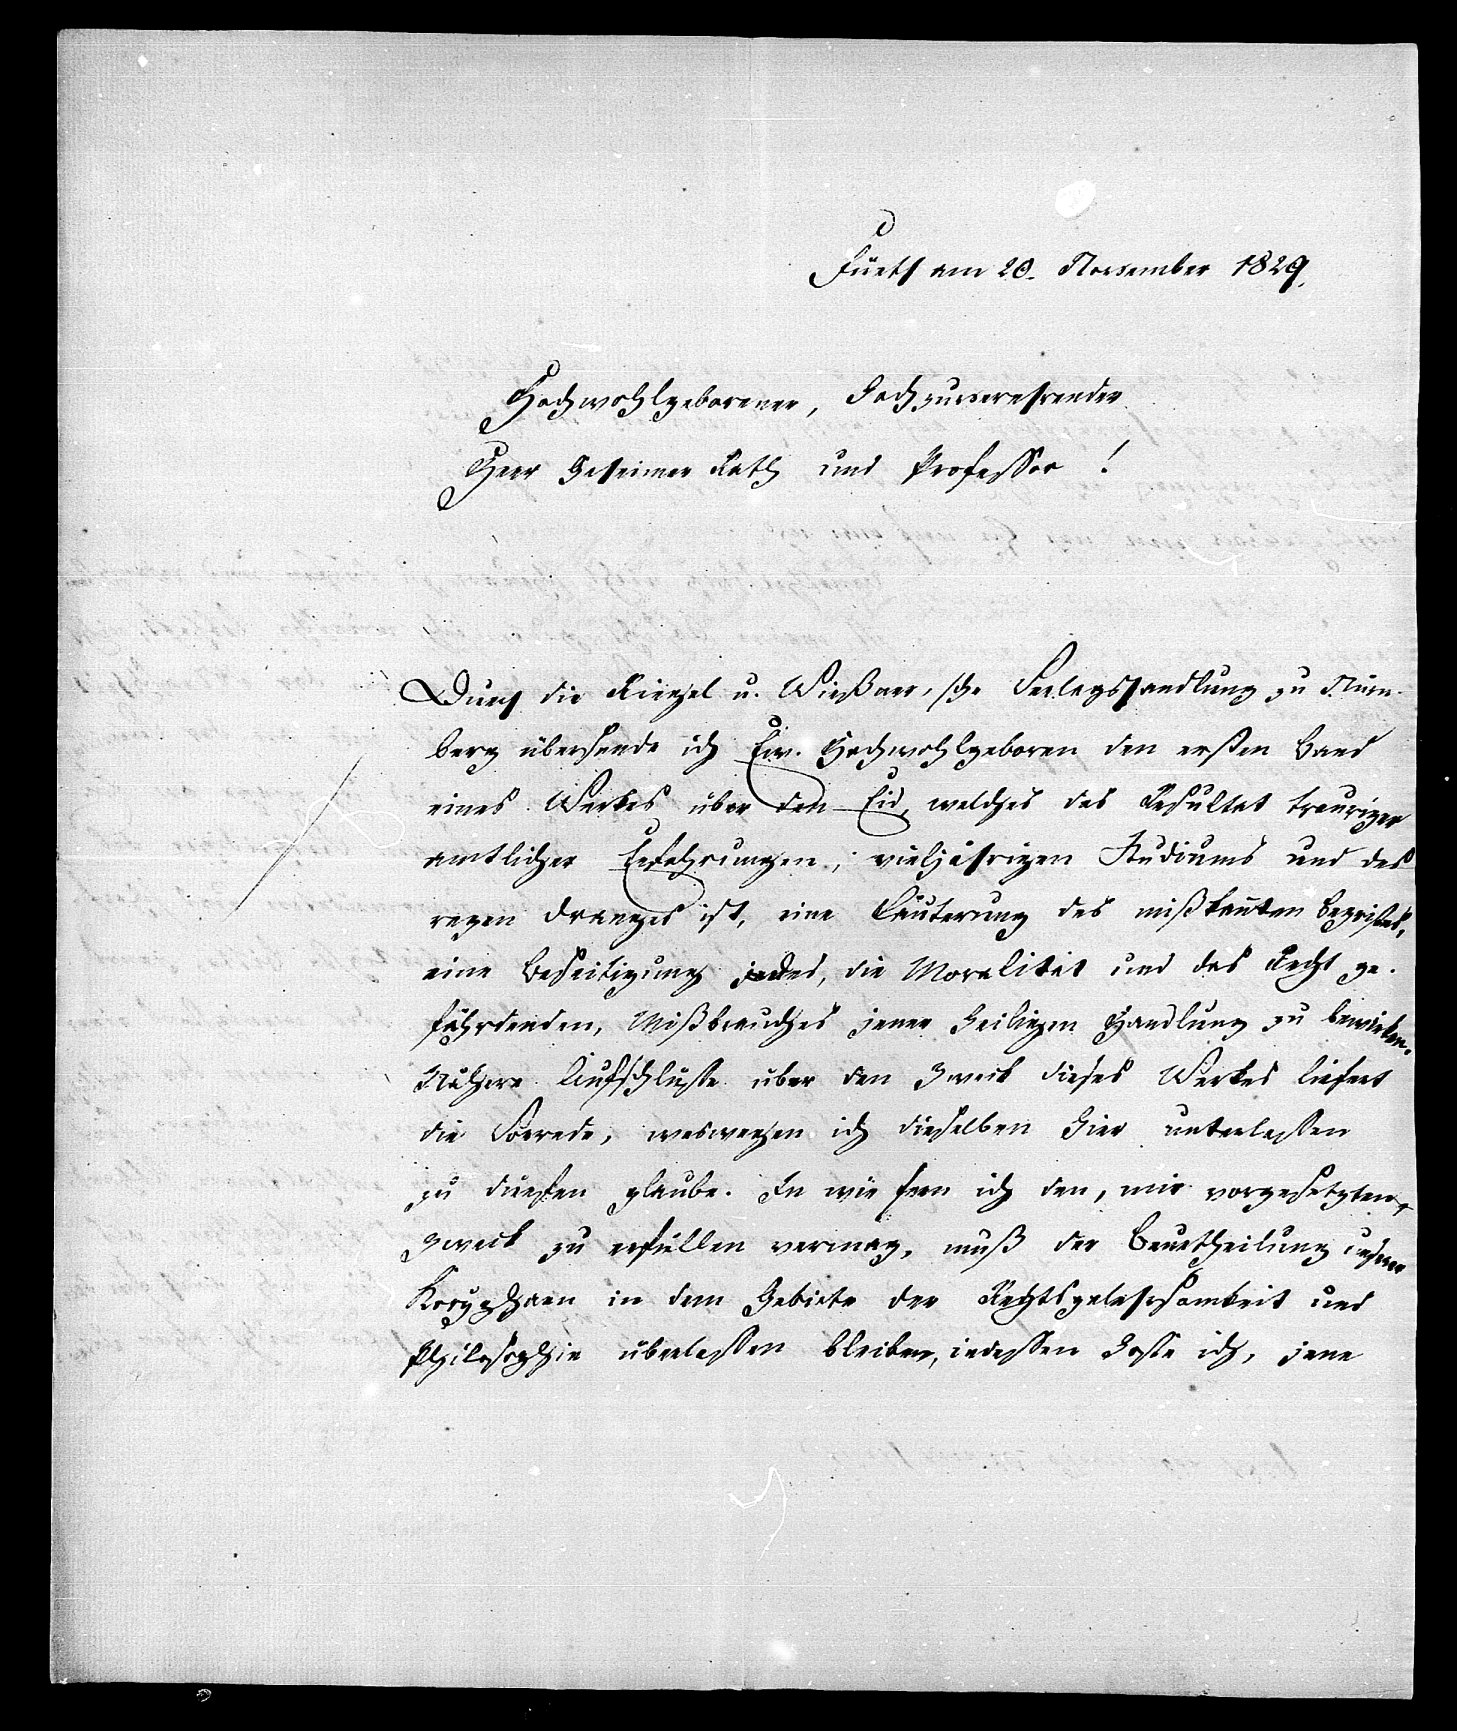 Fürth am 20. November 1829.
Hochwohlgeborener, Hochzuverehrender
Herr Geheimer Rath und Professor!
Durch die Riegel u. Wießner'sche Verlagshandlung zu Nürn-
berg übersende ich Ew. Hochwohlgeboren den ersten Band
eines Werkes über den Eid, welches das Resultat trauriger
amtlicher Erfahrungen, vieljährigen Studiums und des
regen Dranges ist, eine Läuterung des mißkannten Begriffes,
eine Beseitigung jedes, die Moralität und das Recht ge-
fährdenden, Mißbrauches jener heiligen Handlung zu bewirken.
Nähere Aufschlüsse über den Zweck dieses Werkes liefert
die Vorrede, weswegen ich dieselben hier unterlassen
zu dürfen glaube. In wie fern ich den, mir vorgesetzten,
Zweck zu erfüllen vermag, muß der Beurtheilung unserer
Koryphaen in dem Gebiete der Rechtsgelehrsamkeit und
Philosophie überlassen bleiben, indessen hoffe ich, jene